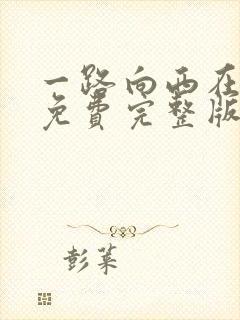 一路向西在
免费完整版
彭莱